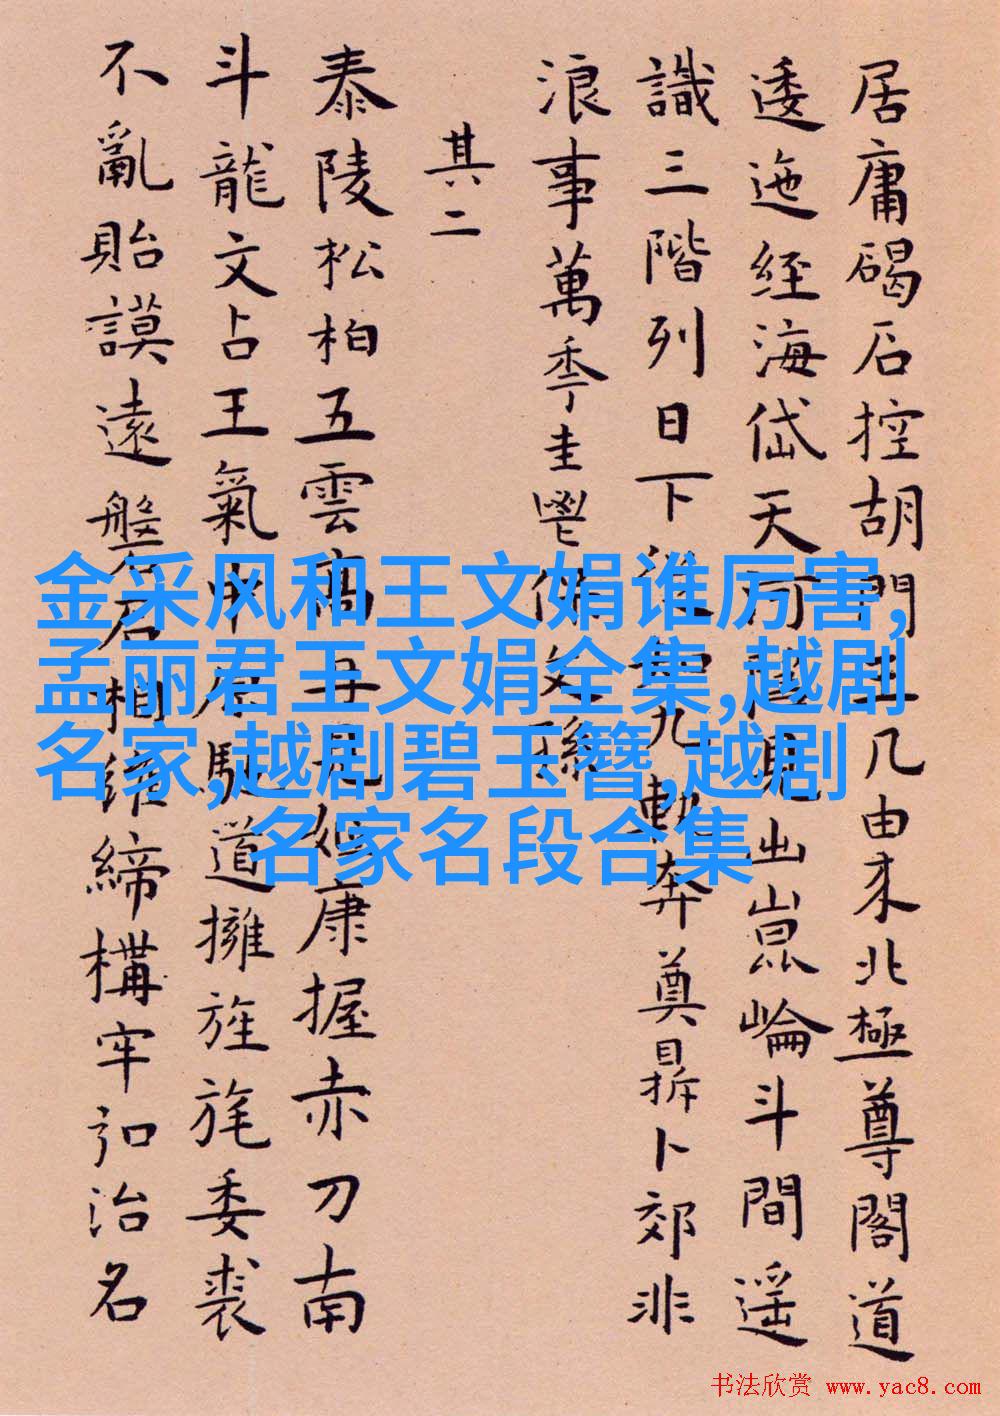 居庸碣石控胡門几由来北極尊閣道
逶迤經海岱天河見出崑崙斗間遥
識三階列日下誰知九軌奔奠鼎卜郊非
浪事萬季圭鬯保文孫
其二
泰陵松柏五雲高康握赤刀南
斗龍文占王氣中原馳道擁旌旄委裘
不亂貽謨遠盤石相維締構牢治名
金采风和王文娟谁厉害,
孟丽君王文娟全集,越剧
名家,越剧碧玉簪,越剧
名家名段合集
书法欣赏 www.yac8.com